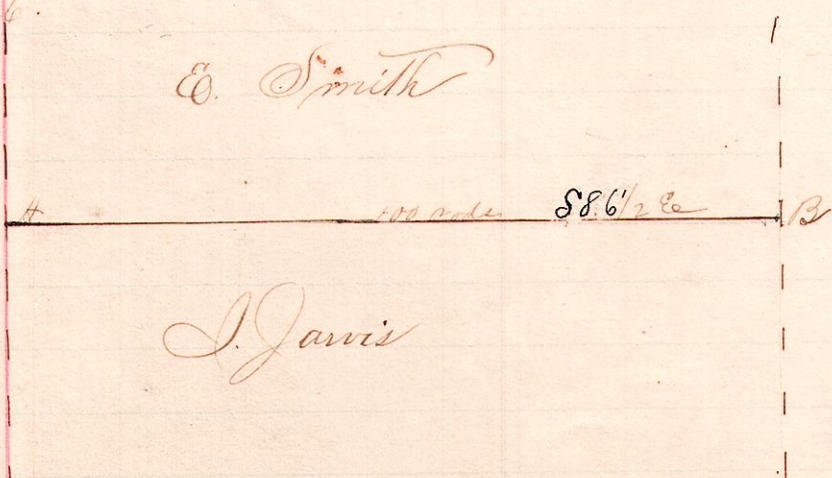 E. Smith
A 100 rods S 86 1/2 E B
J. Jarvis